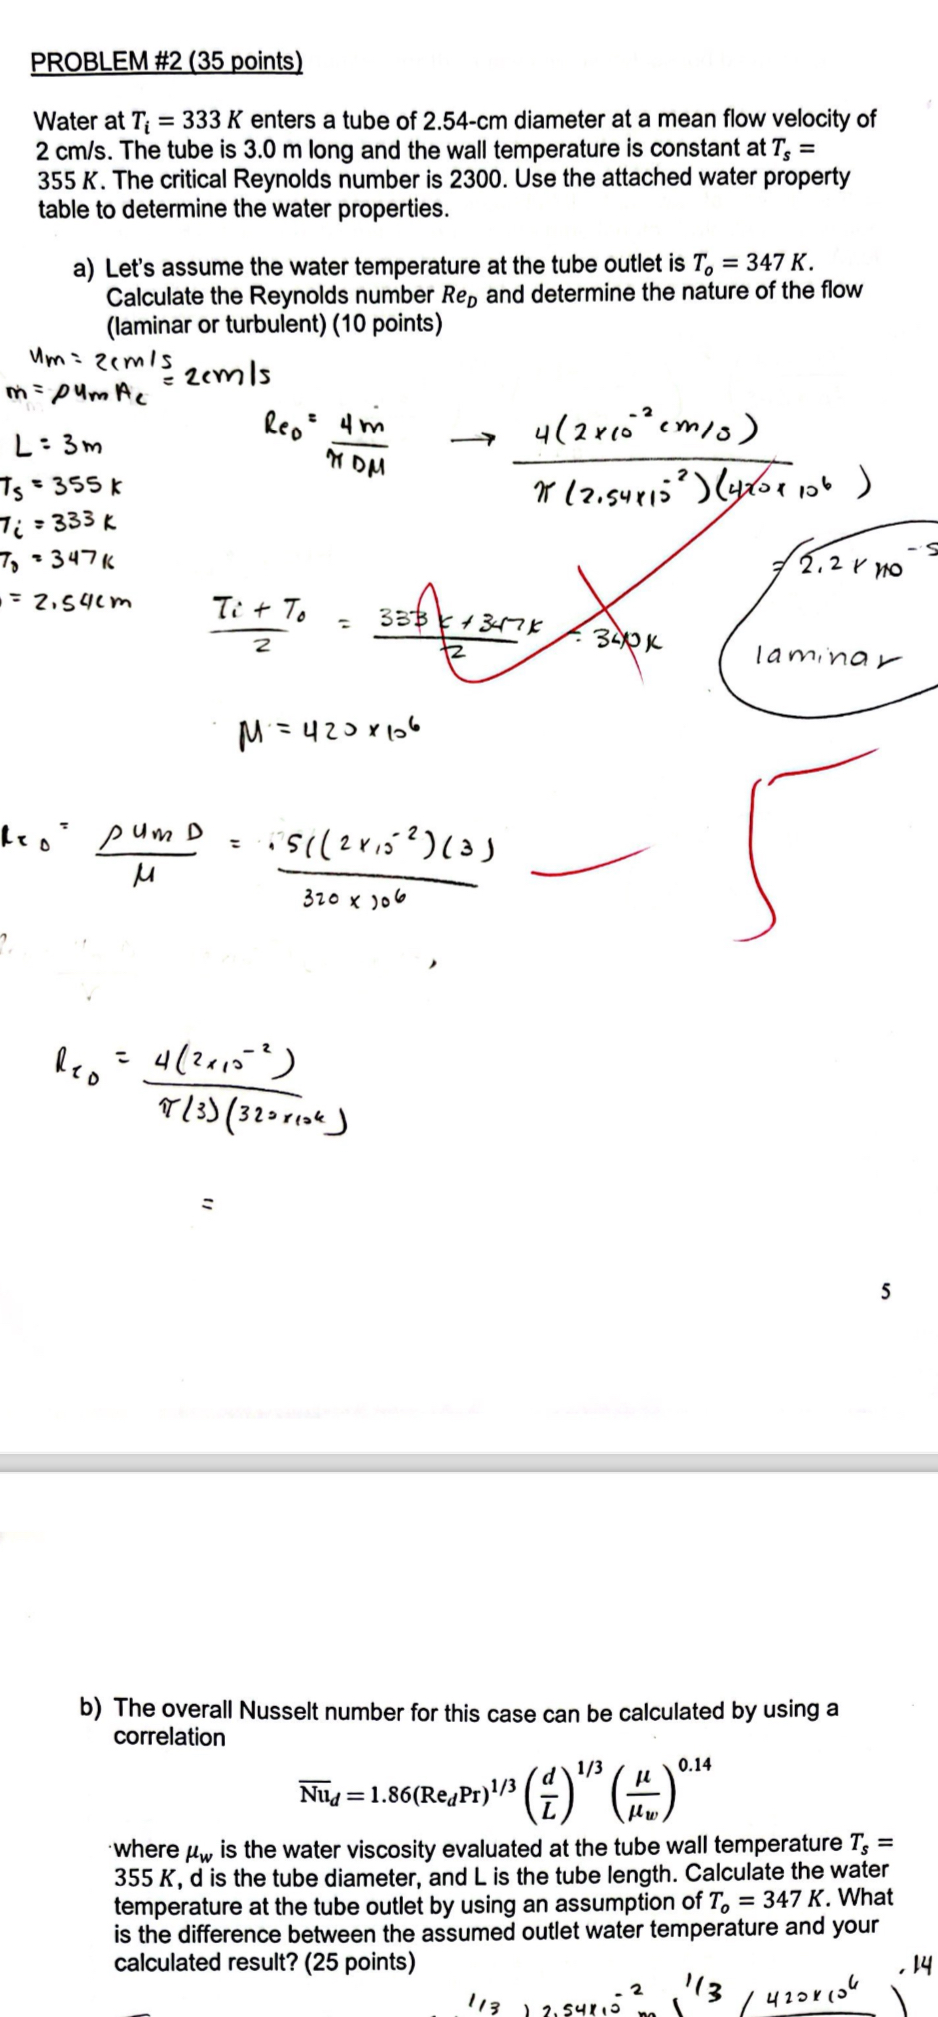 PROBLEM #2 (35 points)
Water at Tᵢ = 333 K enters a tube of 2.54-cm diameter at a mean flow velocity of
2 cm/s. The tube is 3.0 m long and the wall temperature is constant at Tₛ =
355 K. The critical Reynolds number is 2300. Use the attached water property
table to determine the water properties.
a) Let's assume the water temperature at the tube outlet is Tₒ = 347 K.
Calculate the Reynolds number Re_D and determine the nature of the flow
(laminar or turbulent) (10 points)
um = 2cm/s
ṁ = ρ um Ac = 2cm/s
L = 3m
Ts = 355 K
Ti = 333 K
To = 347K
= 2.54cm
Re_D = 4ṁ / πDM → 4(2x10⁻² cm/s) / π(2.54x10⁻²)(420x10⁶)
= 2.2 x 10⁻⁵
laminar
Ti + To / 2 = 333 K + 347K / 2 = 340K
M = 420 x 10⁶
Re_D = ρ um D / M = .5((2x10⁻²)(3) / 320 x 10⁶
5
Re_D = 4(2x10⁻²) / π(3)(320x10⁶)
=
5
b) The overall Nusselt number for this case can be calculated by using a
correlation
N̅u̅_d = 1.86(Re_d Pr)^1/3 (d/L)^1/3 (μ/μ_w)^0.14
where μ_w is the water viscosity evaluated at the tube wall temperature Tₛ =
355 K, d is the tube diameter, and L is the tube length. Calculate the water
temperature at the tube outlet by using an assumption of Tₒ = 347 K. What
is the difference between the assumed outlet water temperature and your
calculated result? (25 points)
1/3 2.54x10⁻² m 1/3 420x10⁶ .14